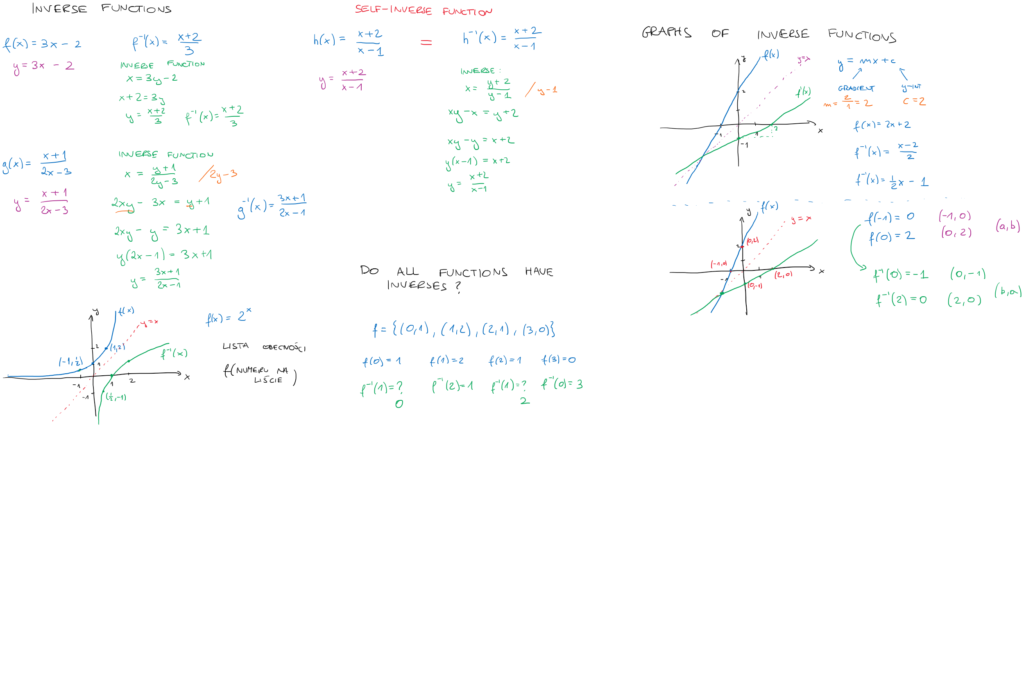 INVERSE FUNCTIONS
f(x) = 3x - 2
y = 3x - 2
f⁻¹(x) = (x+2)/3
INVERSE FUNCTION
x = 3y - 2
x + 2 = 3y
y = (x+2)/3 f⁻¹(x) = (x+2)/3
g(x) = (x+1)/(2x-3)
y = (x+1)/(2x-3)
INVERSE FUNCTION
x = (y+1)/(2y-3) /2y-3
2xy - 3x = y + 1
2xy - y = 3x + 1
y(2x-1) = 3x+1
y = (3x+1)/(2x-1)
g⁻¹(x) = (3x+1)/(2x-1)
y
f(x)
y=x
2
(1,2)
(-1, ½)
1
f⁻¹(x)
-1 1 2 x
-1
(½,-1)
f(x) = 2ˣ
LISTA OBECNOŚCI
f(NUMERU NA
LIŚCIE)
SELF-INVERSE FUNCTION
h(x) = (x+2)/(x-1) = h⁻¹(x) = (x+2)/(x-1)
y = (x+2)/(x-1)
INVERSE:
x = (y+2)/(y-1) /y-1
xy - x = y + 2
xy - y = x + 2
y(x-1) = x+2
y = (x+2)/(x-1)
DO ALL FUNCTIONS HAVE
INVERSES?
f = {(0,1), (1,2), (2,1), (3,0)}
f(0) = 1 f(1) = 2 f(2) = 1 f(3) = 0
f⁻¹(1) = ? f⁻¹(2) = 1 f⁻¹(1) = ? f⁻¹(0) = 3
0 2
GRAPHS OF INVERSE FUNCTIONS
f(x)
y=x
2
-1 1 2 x
-1
y = mx + c
GRADIENT
m = 2/1 = 2 c = 2
f(x) = 2x + 2
f⁻¹(x) = (x-2)/2
f⁻¹(x) = ½x - 1
y
f(x)
y = x
(0,2)
(-1,0)
(2,0)
x
-1
(0,-1)
f(-1) = 0 (-1,0)
f(0) = 2 (0,2) (a,b)
f⁻¹(0) = -1 (0,-1)
f⁻¹(2) = 0 (2,0) (b,a)